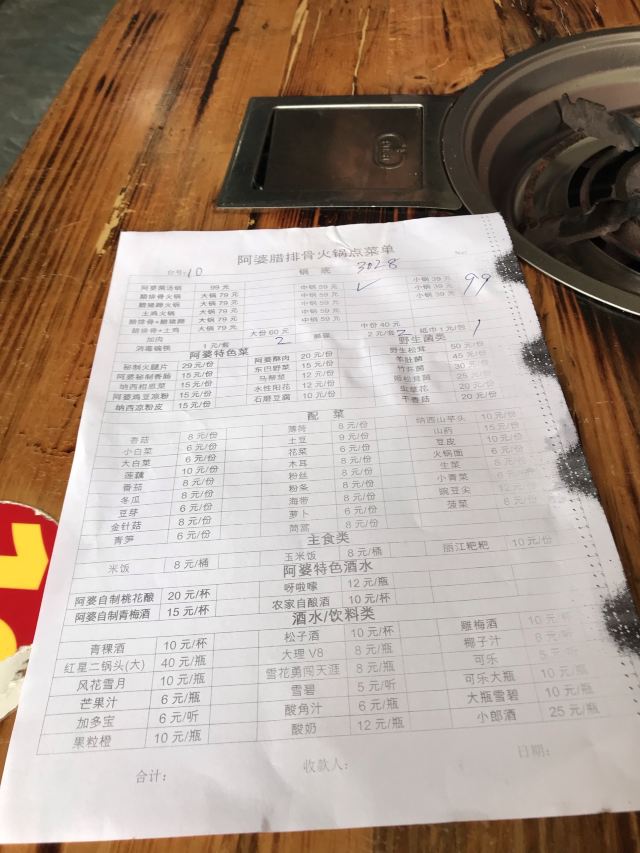 阿婆腊排骨火锅点菜单
No:
台号: 10 锅底 3028
阿婆菌汤锅 99元 中锅 59元 ✓ 小锅 39元 99
腊排骨火锅 大锅 79元 中锅 59元 小锅 39元
腊猪脚火锅 大锅 79元 中锅 59元 小锅 39元
土鸡火锅 大锅 79元 中锅 59元
腊排骨+腊猪脚 大锅 79元 中锅 59元
腊排骨+土鸡 大锅 79元 中锅 59元
加肉 大份 60元 中份 40元
消毒碗筷 1元/套 2 2元/套 2 纸巾 1元/包 1
阿婆特色菜 野生菌类
秘制火腿片 29元/份 阿婆酥肉 20元/份 野生松茸 50元/份
阿婆秘制香肠 15元/份 东巴野菜 15元/份 羊肚菌 45元/份
纳西相思菜 15元/份 马帮菜 12元/份 竹荪菌 30元/份
阿婆鸡豆凉粉 15元/份 水性阳花 12元/份 姬松茸菌 25元/份
纳西凉粉皮 15元/份 石磨豆腐 10元/份 虫草花 20元/份
干香菇 20元/份
配菜
香菇 8元/份 薄荷 8元/份 纳西山芋头 10元/份
小白菜 6元/份 土豆 9元/份 山药 15元/份
大白菜 6元/份 花菜 6元/份 豆皮 10元/份
莲藕 10元/份 木耳 8元/份 火锅面 6元/份
青茄 8元/份 粉丝 8元/份 生菜 8元/份
冬瓜 8元/份 粉条 8元/份 小青菜
豆芽 6元/份 海带 8元/份 豌豆尖
金针菇 8元/份 萝卜 6元/份 菠菜
青笋 6元/份 茼蒿 8元/份
主食类
米饭 8元/桶 玉米饭 8元/桶 丽江粑粑 10元/份
阿婆特色酒水
阿婆自制桃花酿 20元/杯 呀啦嗦 12元/瓶
阿婆自制青梅酒 15元/杯 农家自酿酒 10元/杯
酒水/饮料类
青稞酒 10元/杯 松子酒 10元/杯 雕梅酒 10元/杯
红星二锅头(大) 40元/瓶 大理V8 8元/瓶 椰子汁 8元/听
风花雪月 10元/瓶 雪花勇闯天涯 8元/瓶 可乐 5元/听
芒果汁 6元/瓶 雪碧 5元/听 可乐大瓶 10元/瓶
加多宝 6元/听 酸角汁 6元/瓶 大瓶雪碧 10元/瓶
果粒橙 10元/瓶 酸奶 12元/瓶 小郎酒 25元/瓶
合计: 收款人: 日期: